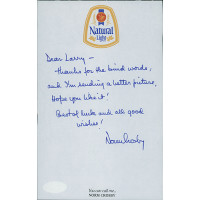 Natural
Light
Dear Larry –
Thanks for the kind words,
and I'm sending a better picture,
Hope you like it!
Best of luck and all good
wishes!
Norm Crosby
You can call me,
NORM CROSBY